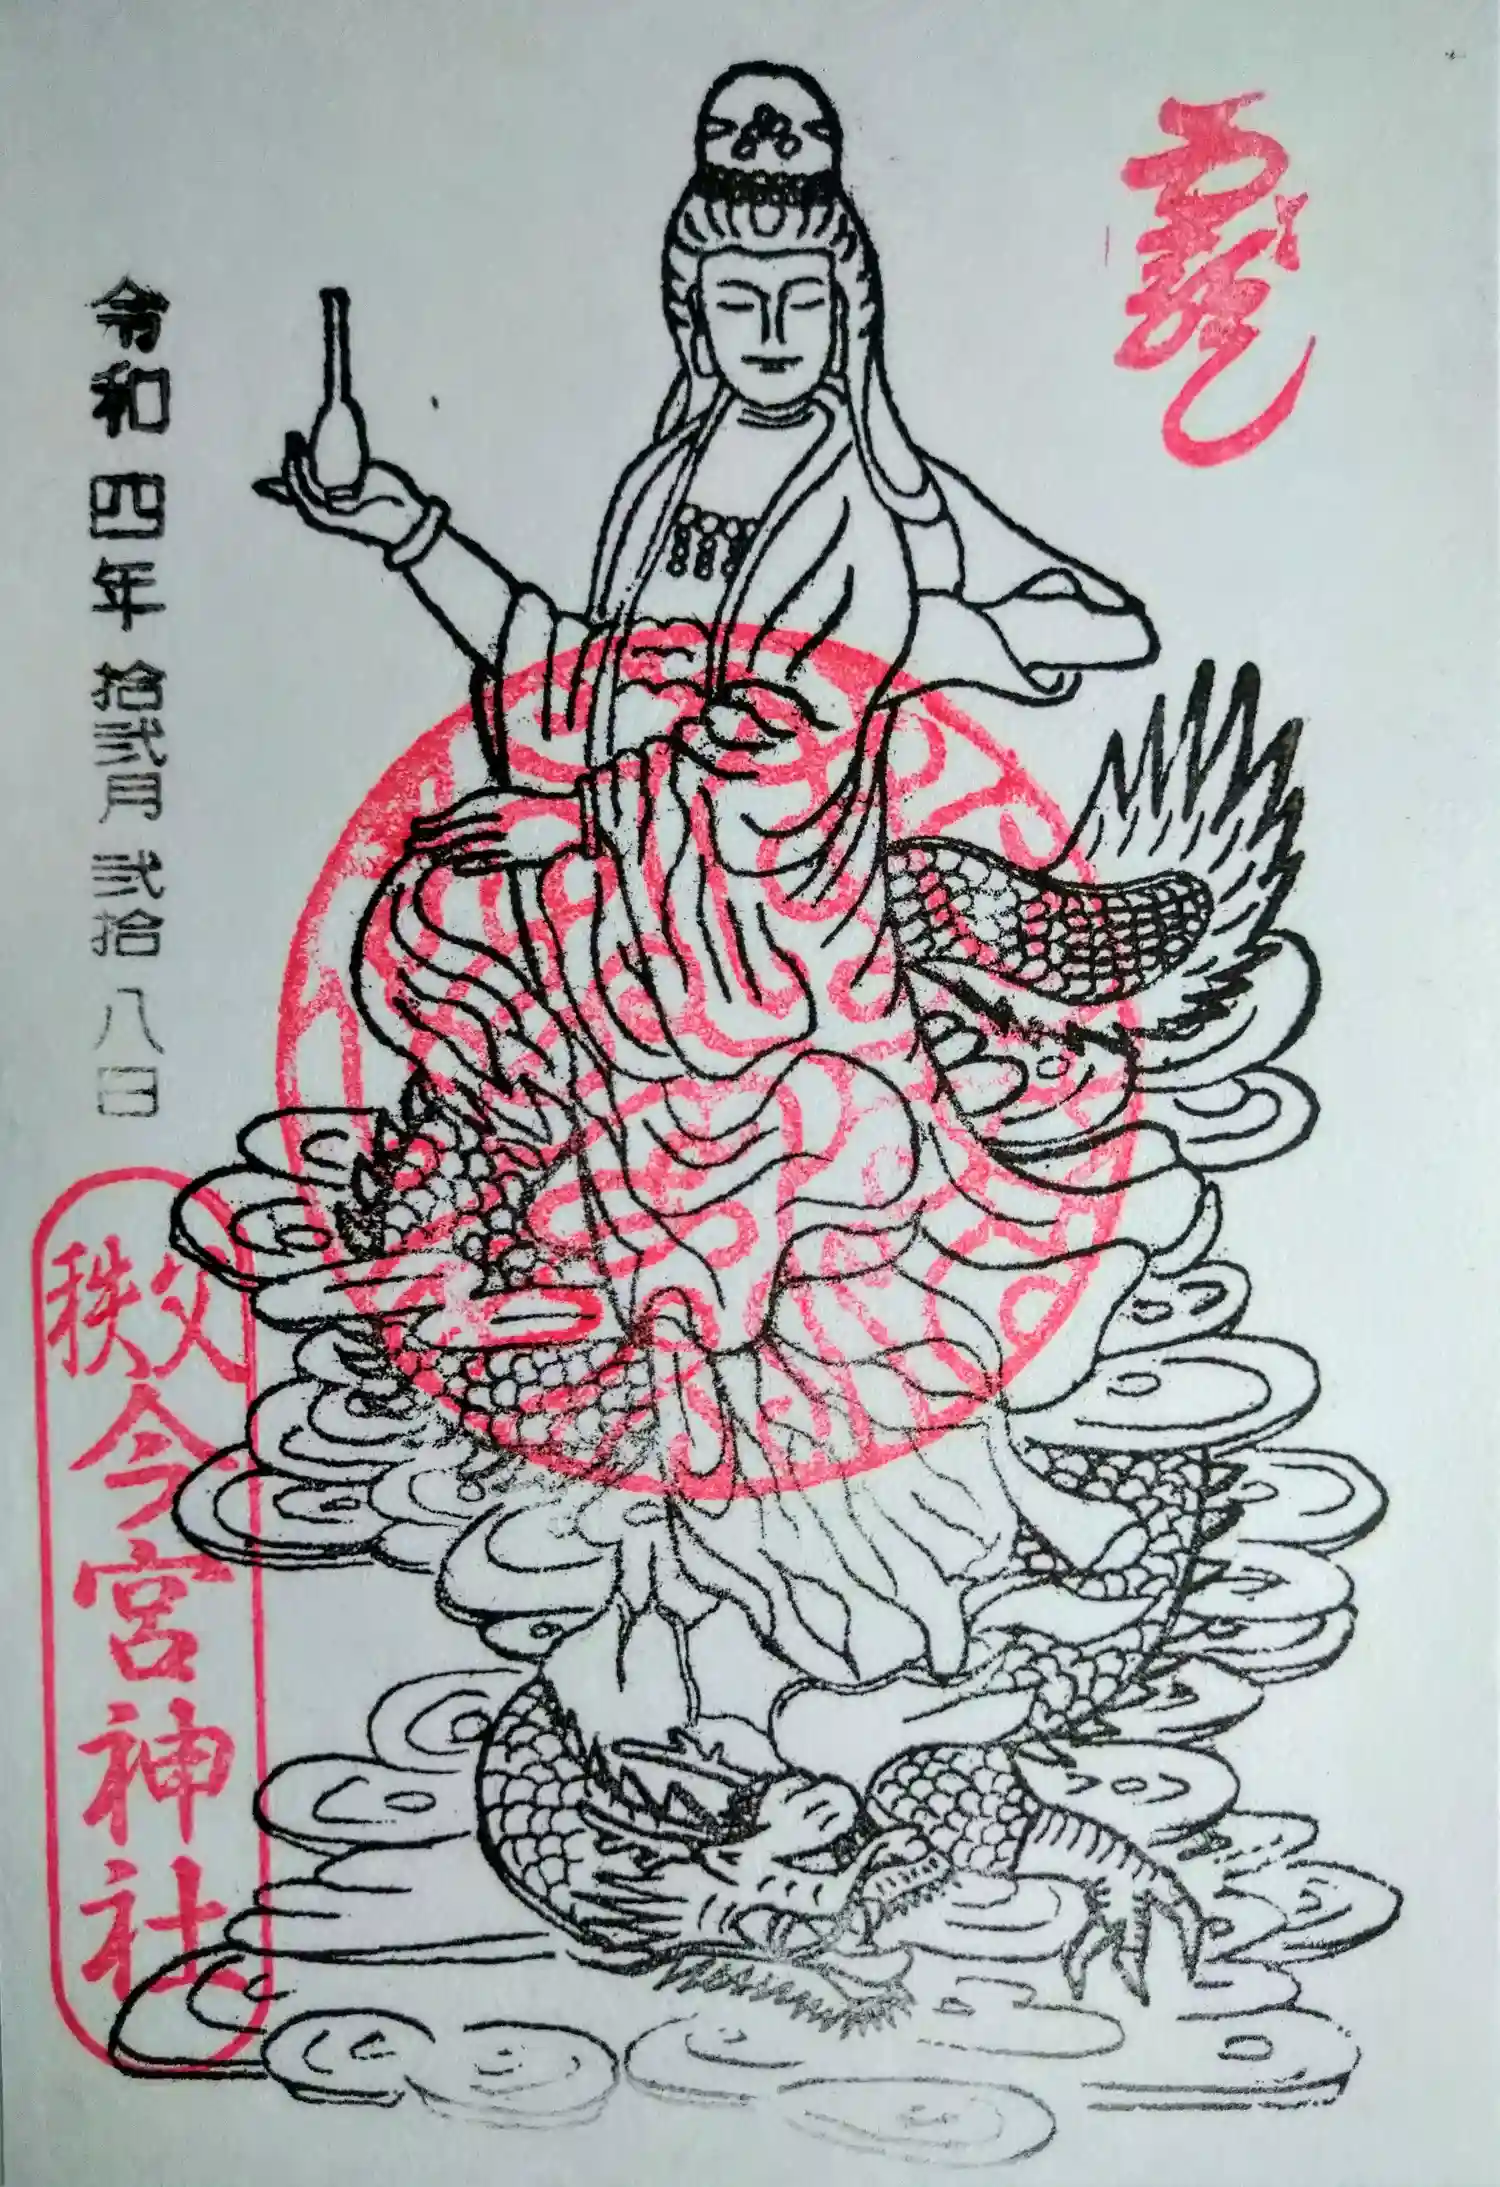 龍
令和四年拾弐月弐拾八日
秩父今宮神社